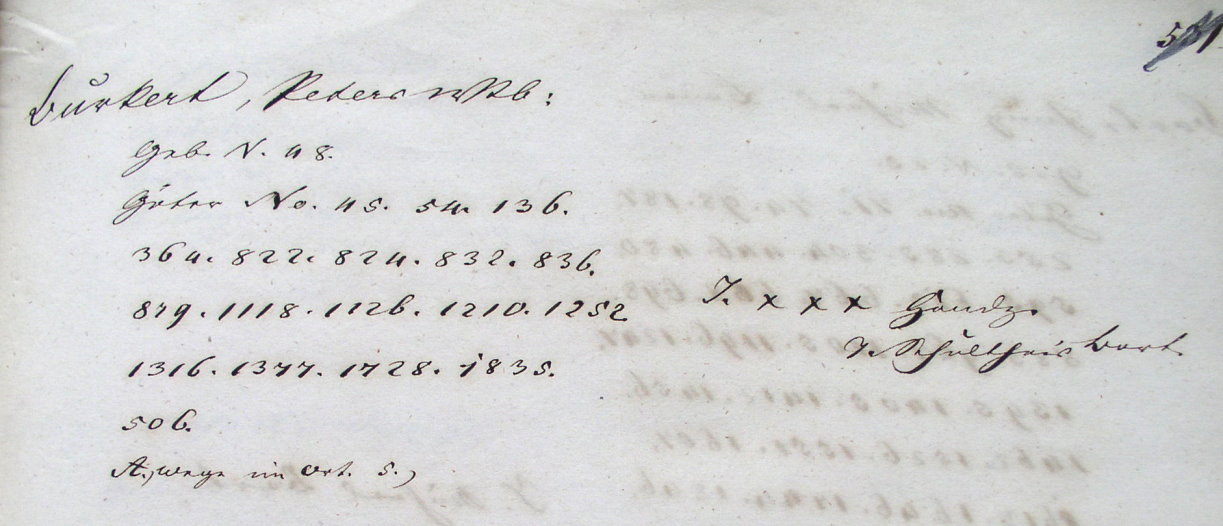 Burkert, Peters Wtb:
Geb. N. 48.
Güter No. 45. 54. 136.
364. 822. 824. 832. 836.
879. 1118. 1126. 1210. 1252
1316. 1377. 1728. 1835.
506.
A, wege im Ort. 5.)
T. x x x Handz.
T. Schultheis Bort.